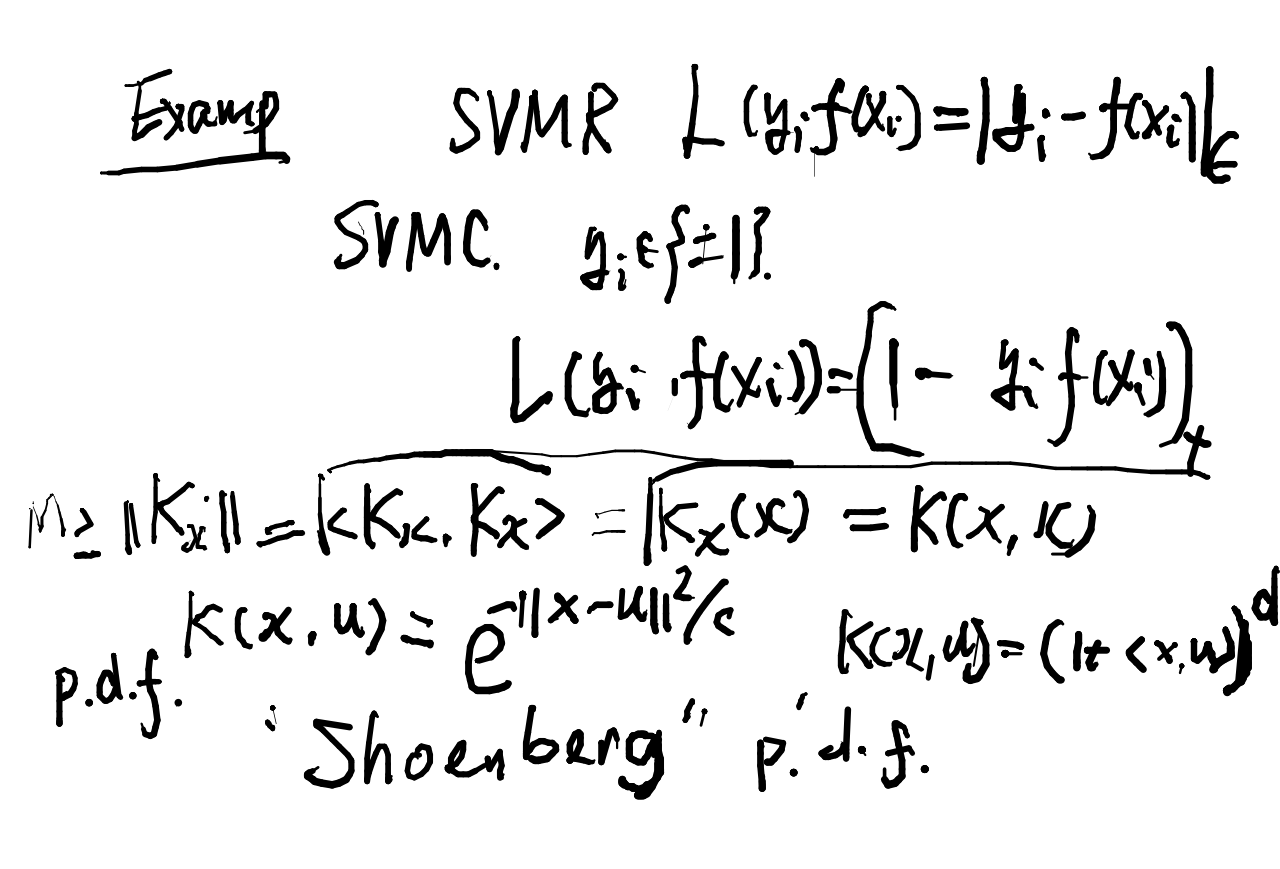 Examp SVMR L(y_i, f(x_i)) = |y_i - f(x_i)|_ε
SVMC. y_i ∈ {±1}.
L(y_i, f(x_i)) = (1 - y_i f(x_i))_+
M ≥ ||K_x|| = √<K_x, K_x> = √K_x(x) = K(x, x)
K(x, u) = e^{-||x-u||^2/c} K(x, u) = (1 + <x, u>)^d
p.d.f.
"Shoenberg" p.d.f.